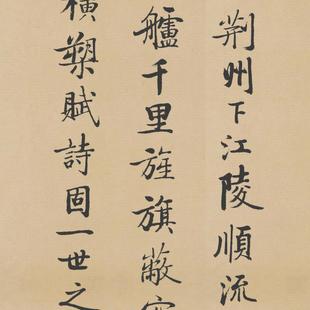 荆州下江陵順流
艫千里旌旗蔽空
橫槊賦詩固一世之